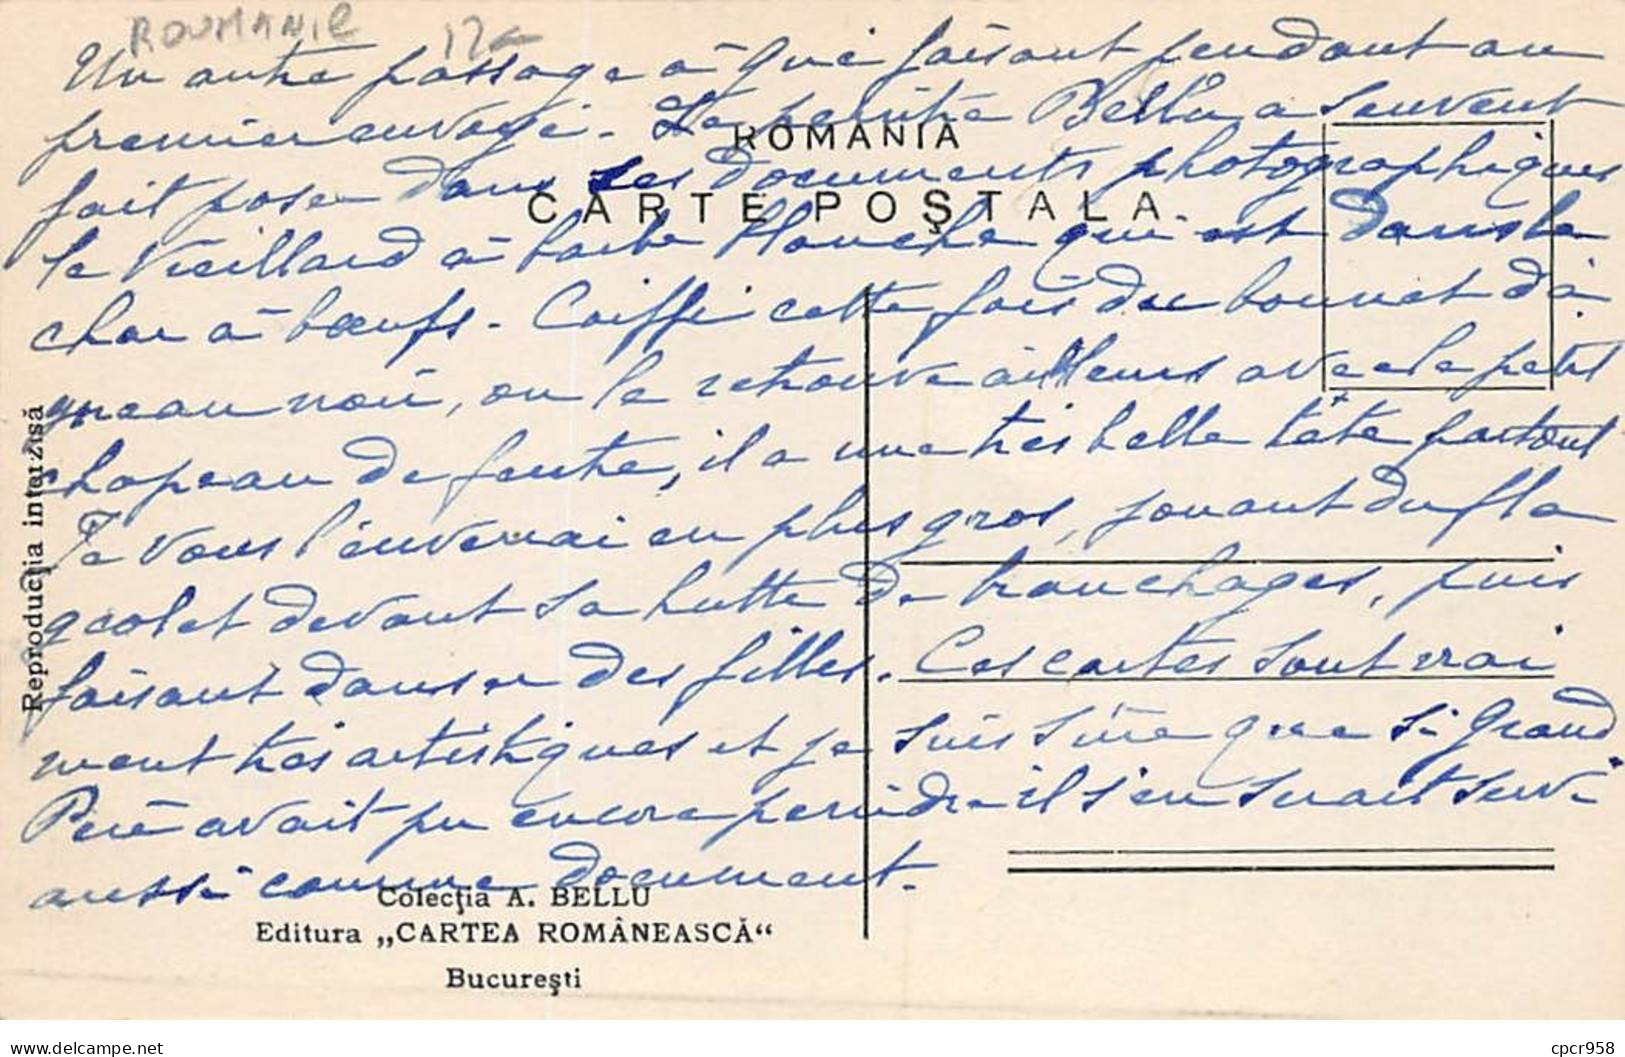 ROUMANIE 12
Un autre passage à gué faisant pendant au
premier envoyé. Le peintre Bellu a souvent
ROMANIA
fait poser dans ses documents photographiques
CARTE POȘTALA
le vieillard à barbe blanche qui est dans le
char à bœufs. Coiffé cette fois du bonnet d'a
gneau noir, on le retrouve ailleurs avec le petit
chapeau de feutre, il a une très belle tête partout
Je vous l'enverrai en plus gros, jouant du fla
geolet devant sa hutte de branchages, puis
faisant danser des filles. Ces cartes sont vrai
ment très artistiques et je suis sûre que si Grand
Père avait pu encore peindre il s'en serait servi
aussi comme document.
Colecția A. BELLU
Editura „CARTEA ROMÂNEASCĂ“
București
Reproducția interzisă
delcampe.net
cpcr958